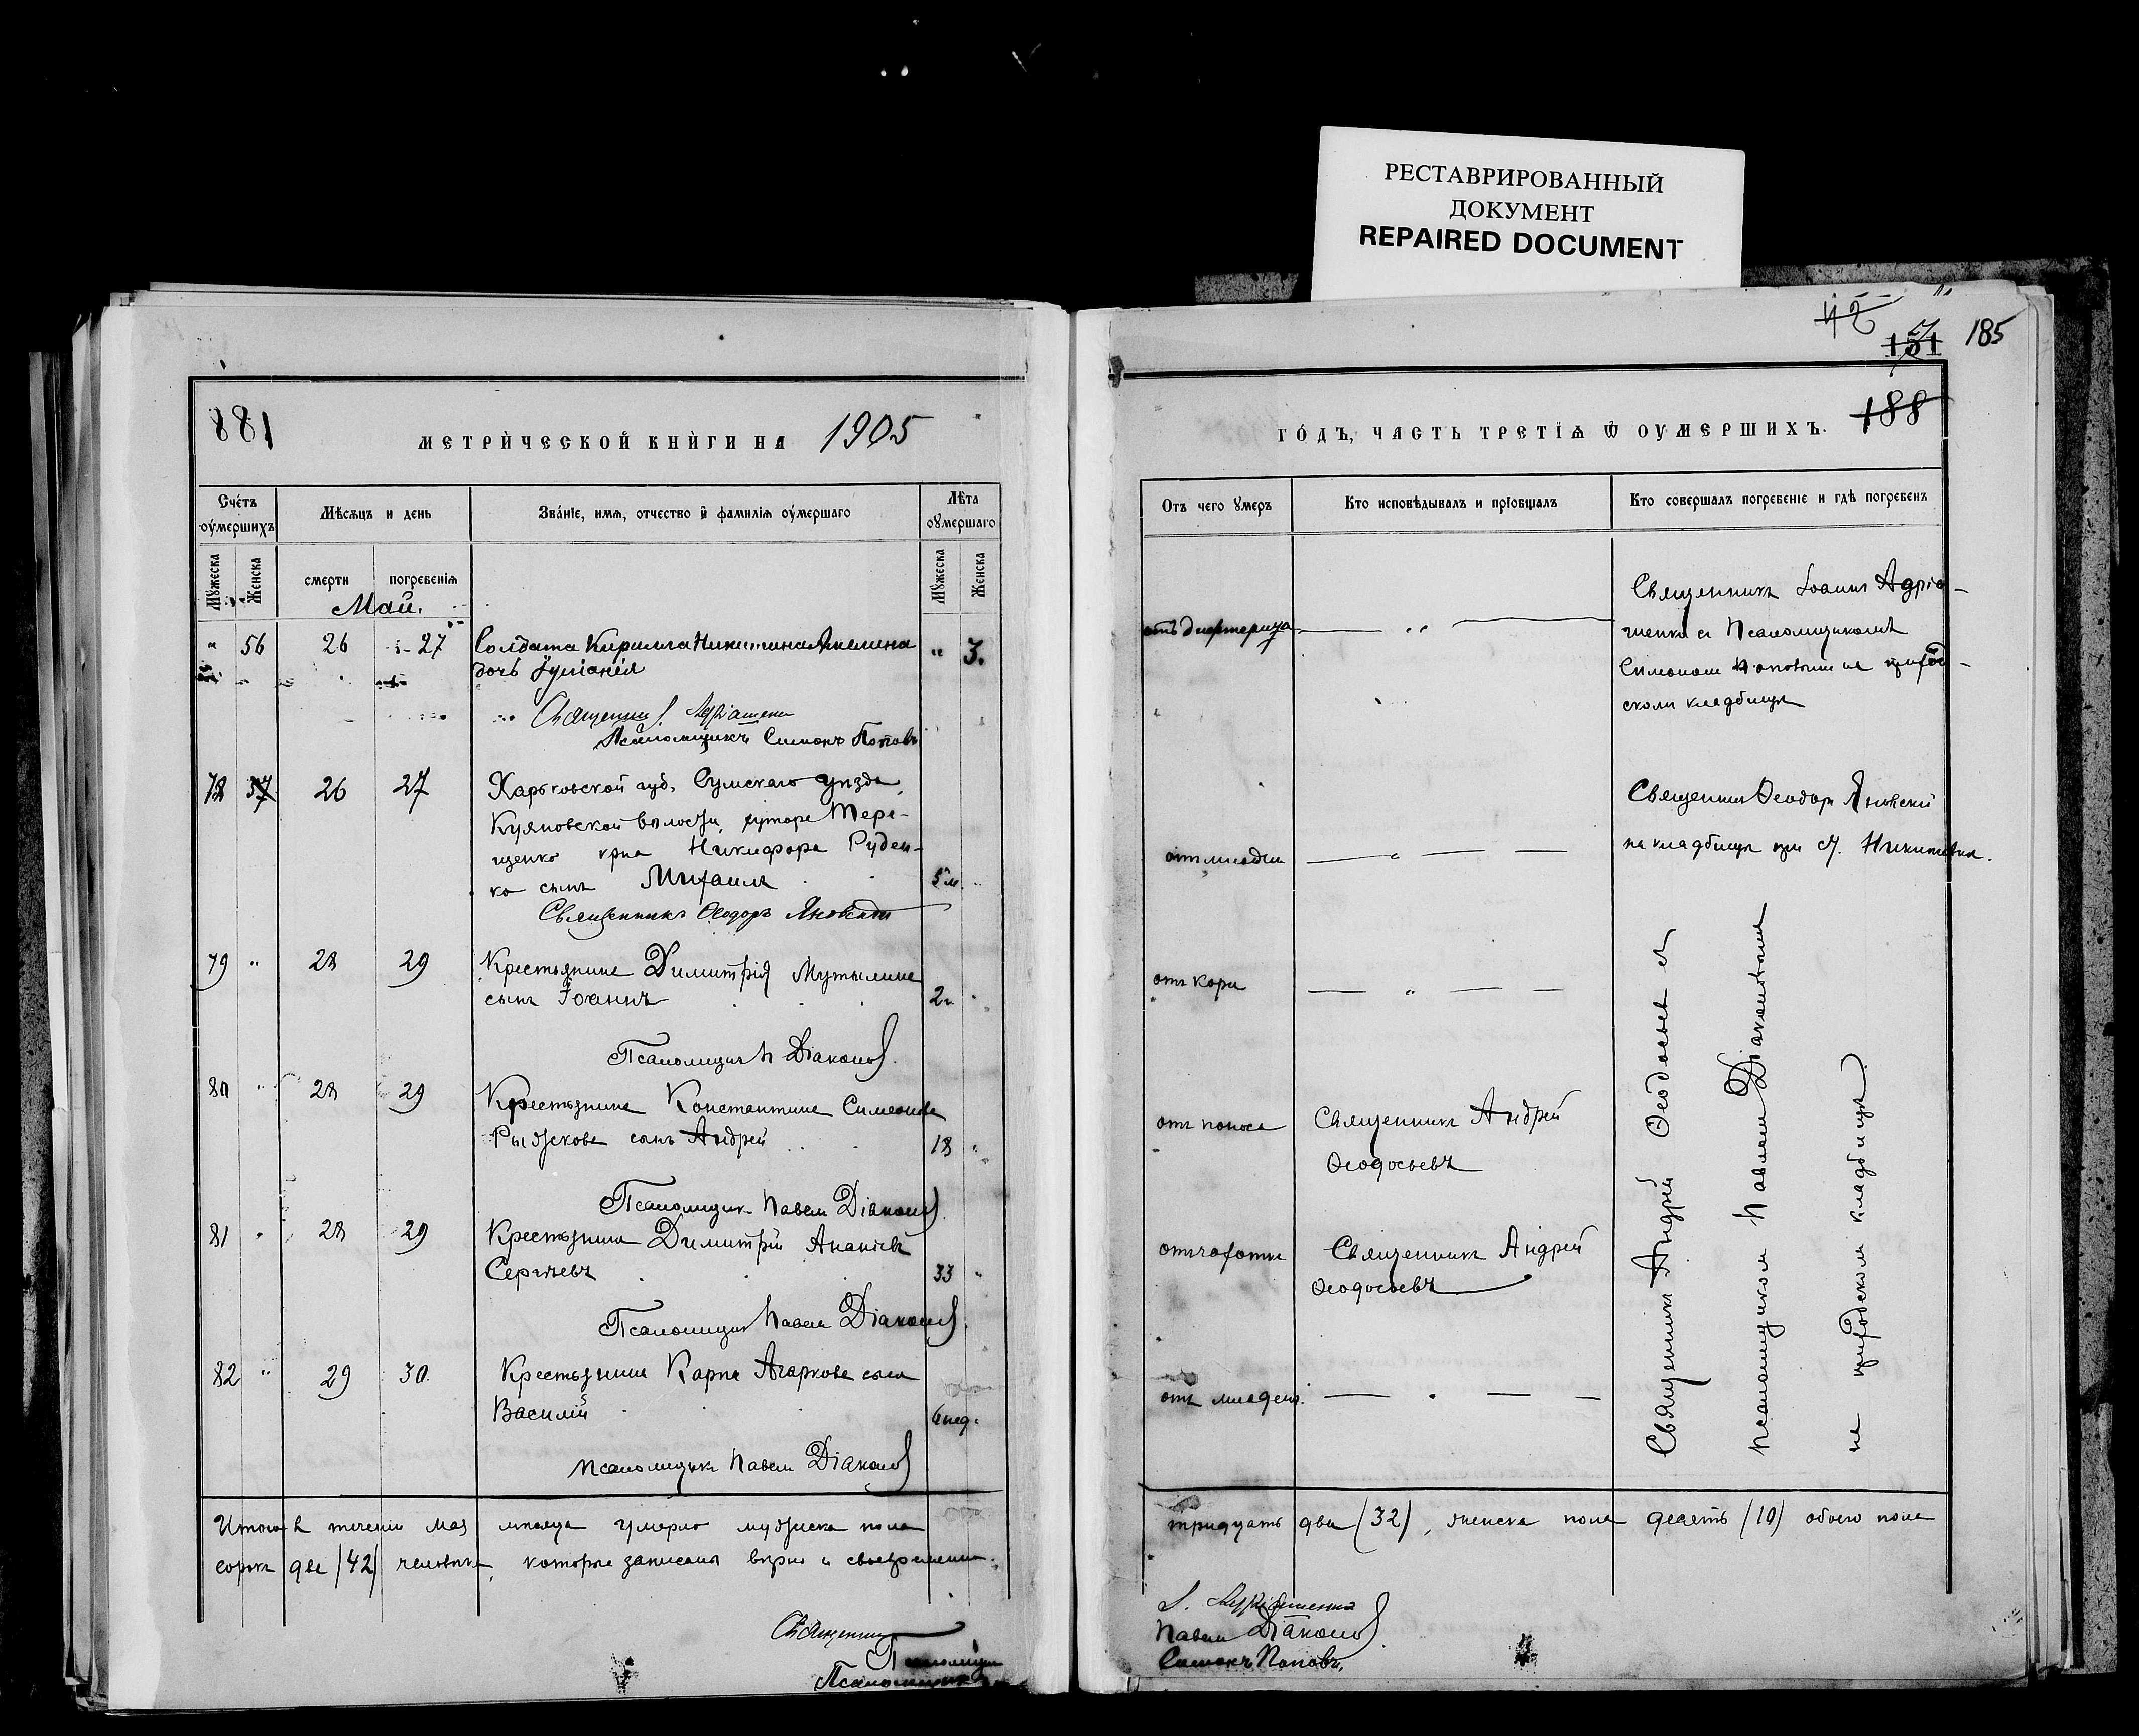 РЕСТАВРИРОВАННЫЙ
ДОКУМЕНТ
REPAIRED DOCUMENT
42
151
185
188
881
МЕТРИЧЕСКОЙ КНИГИ НА 1905
Счетъ оумершихъ
Мѣсяцъ и день
Званіе, имя, отчество и фамилія оумершаго
Лѣта оумершаго
Мужеска
Женска
смерти
погребенія
Мужеска
Женска
Май.
" 56 26 27 Солдата Кирилла Никитина
дочь Іуліанія " 3.
Священникъ І.
Псаломщикъ Симонъ Поповъ
78 57 26 27 Харьковской губ. Сумскаго уѣзда,
Куяновской волости, хутора Тере-
щенко кр-на Никифора Руден-
ко сынъ Михаилъ 5 м. "
Священникъ Ѳеодоръ Яновскій
79 " 28 29 Крестьянина Димитрія Мутылина
сынъ Іоаннъ 2 г. "
Псаломщикъ П Діаконов
80 " 28 29 Крестьянина Константина Симеонова
Рыжкова сынъ Андрей 18 "
Псаломщикъ Павелъ Діаконов
81 " 28 29 Крестьянинъ Димитрій Ананіевъ
Сергѣевъ 33 "
Псаломщикъ Павелъ Діаконов
82 " 29 30 Крестьянина Карпа Агаркова сынъ
Василій 6 нед. "
Псаломщикъ Павелъ Діаконов
Итого въ теченіи мая мѣсяца умерло мужеска пола
сорокъ два (42) человѣка, которые записаны вѣрно и своевременно.
Священникъ
Псаломщикъ
Псаломщикъ
ГОДЪ, ЧАСТЬ ТРЕТІЯ Ѿ ОУМЕРШИХЪ.
Отъ чего умеръ
Кто исповѣдывалъ и пріобщалъ
Кто совершалъ погребеніе и гдѣ погребенъ
отъ дифтерита "
Священникъ Іоаннъ Адріа-
шенко съ Псаломщикомъ
Симономъ Поповымъ на приход-
скомъ кладбищѣ
Священникъ Ѳеодоръ Яновскій
отъ "
на кладбищѣ при сл. Никитовка.
отъ кори "
отъ поноса Священникъ Андрей
Ѳеодосьевъ
отъ чахотки Священникъ Андрей
Ѳеодосьевъ
отъ младен. "
Священникъ Андрей Ѳеодосьевъ съ
псаломщикомъ Павломъ Діаконовымъ
на приходскомъ кладбищѣ.
тридцать два (32), женска пола десять (10) обоего пола
І.
Павелъ Діаконов
Симонъ Поповъ,